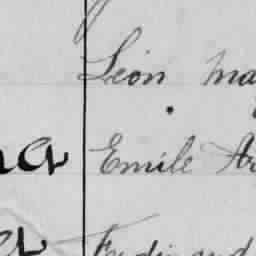 Léon Ma
na Emile Ar
Ferdinand